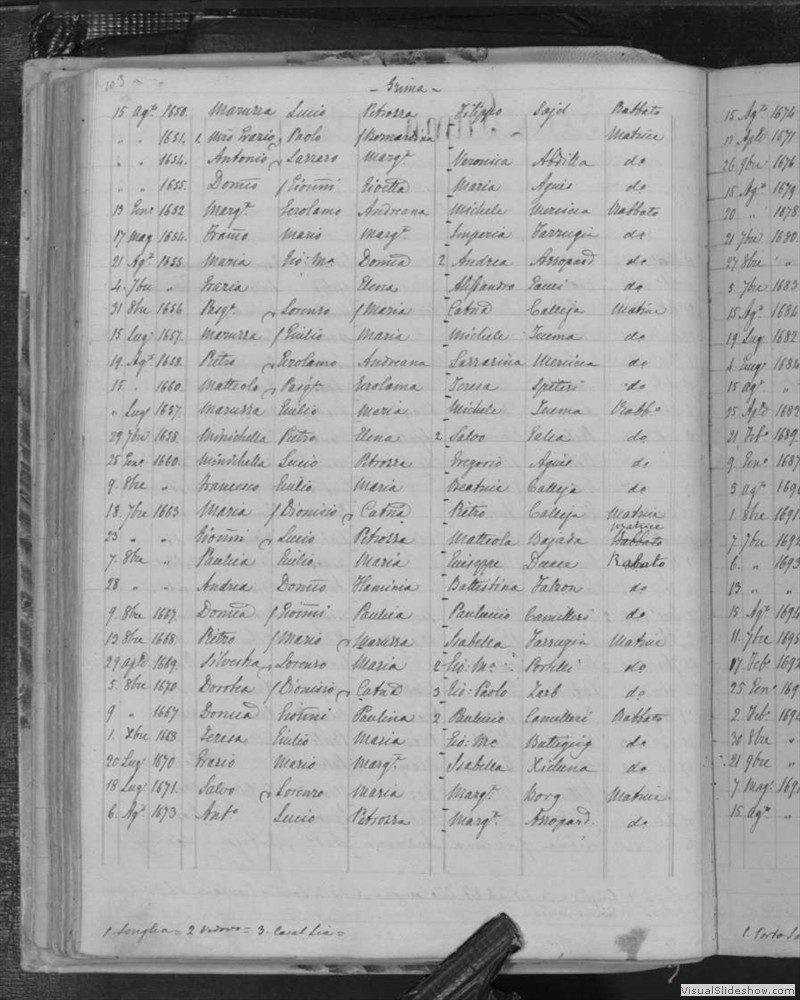 103
- Grima -
15 Agto 1650. Maruzza Lucio Petrozza Filippo Sajd Rabbato
" " 1651. 1. Grazio Paolo Bernardina Matrice
" " 1654. Antonio Lazzaro Margta Veronica Abdilla do
" " 1655. Domco Gionni Gioella Maria Agius do
13 Genr 1652 Margta Gerolamo Andreana Michele Mercieca Rabbato
17 Mag 1654. Mario Margta Imperia Farrugia do
21 Agto 1655 Maria Gio: Ma Domca 2 Andrea Azzopard do
4. 7bre " Grazia Elena Alessandro do
31 8bre 1656 Lorenzo Maria Catna Calleja Matrice
15 Lug 1657. Maruzza Giulio Maria Michele do
19. Agto 1658. Pietro Gerolamo Andreana Lazzarina Mercieca do
15 " 1660. Matteolo Gerolama Teresa Spiteri do
" Lug 1657. Maruzza Giulio Maria Michele Rabbo
29 7bre 1658. Minichella Pietro Elena 2 Salvo Galea do
25 Genr 1660. Minichella Lucio Petrozza Gregorio Agius do
9. 8bre " Francesco Giulio Maria Beatrice Calleja do
18. 7bre 1663 Maria Dionisio Catna Pietro Calleja Matrice
23 " " Gionni Lucio Petrozza Matteola Bajada Matrice
7. 8bre " Paulica Giulio Maria Giuseppe Rabato
28 " " Andrea Domco Flaminia Battistina Falzon do
9. 8bre 1667. Domca Gionni Paulica Paulucio Camilleri do
13 8bre 1668. Pietro Mario Maruzza Isabella Farrugia Matrice
29 aple 1669. Silvestra Lorenzo Maria 2 Gio: Ma Portelli do
5. 8bre 1670 Dorotea Dionisio Catna 3 Gio: Paolo Zarb do
9 " 1667 Domca Gionni Paulina 2 Paulucio Camilleri Rabbato
1. Xbre 1668 Teresa Giulio Maria Gio: Ma Buttigieg do
20 Lug 1670 Grazio Mario Margta Isabella Xicluna do
18 Lug 1671. Salvo Lorenzo Maria Margta Borg Matrice
6. Agto 1673 Anto Lucio Petrozza Margta Azzopard do
1. Senglea = 2 Vedovo = 3. Casal Lia =
15 Agto 1674.
12 Aple 1671
26 9bre 1676
15 Agto 1679.
20 " 1678.
21 7bre 1680.
27 8bre "
5. 7bre 1683
15. Agto 1684
19 Lug 1682
15 agto "
25 Aple 1682
21 Febo 1689.
9. Geno 1687
5 agto 169
1. 8bre 1691.
7 7bre 1692
6. " 1693
13 " "
15 Agto 1694
11. 7bre 1695
17 Febo 169
25 Geno 169
2. Febo 169
30 8bre "
21 9bre "
7. Mago 169
15. agto "
VisualSlideshow.com